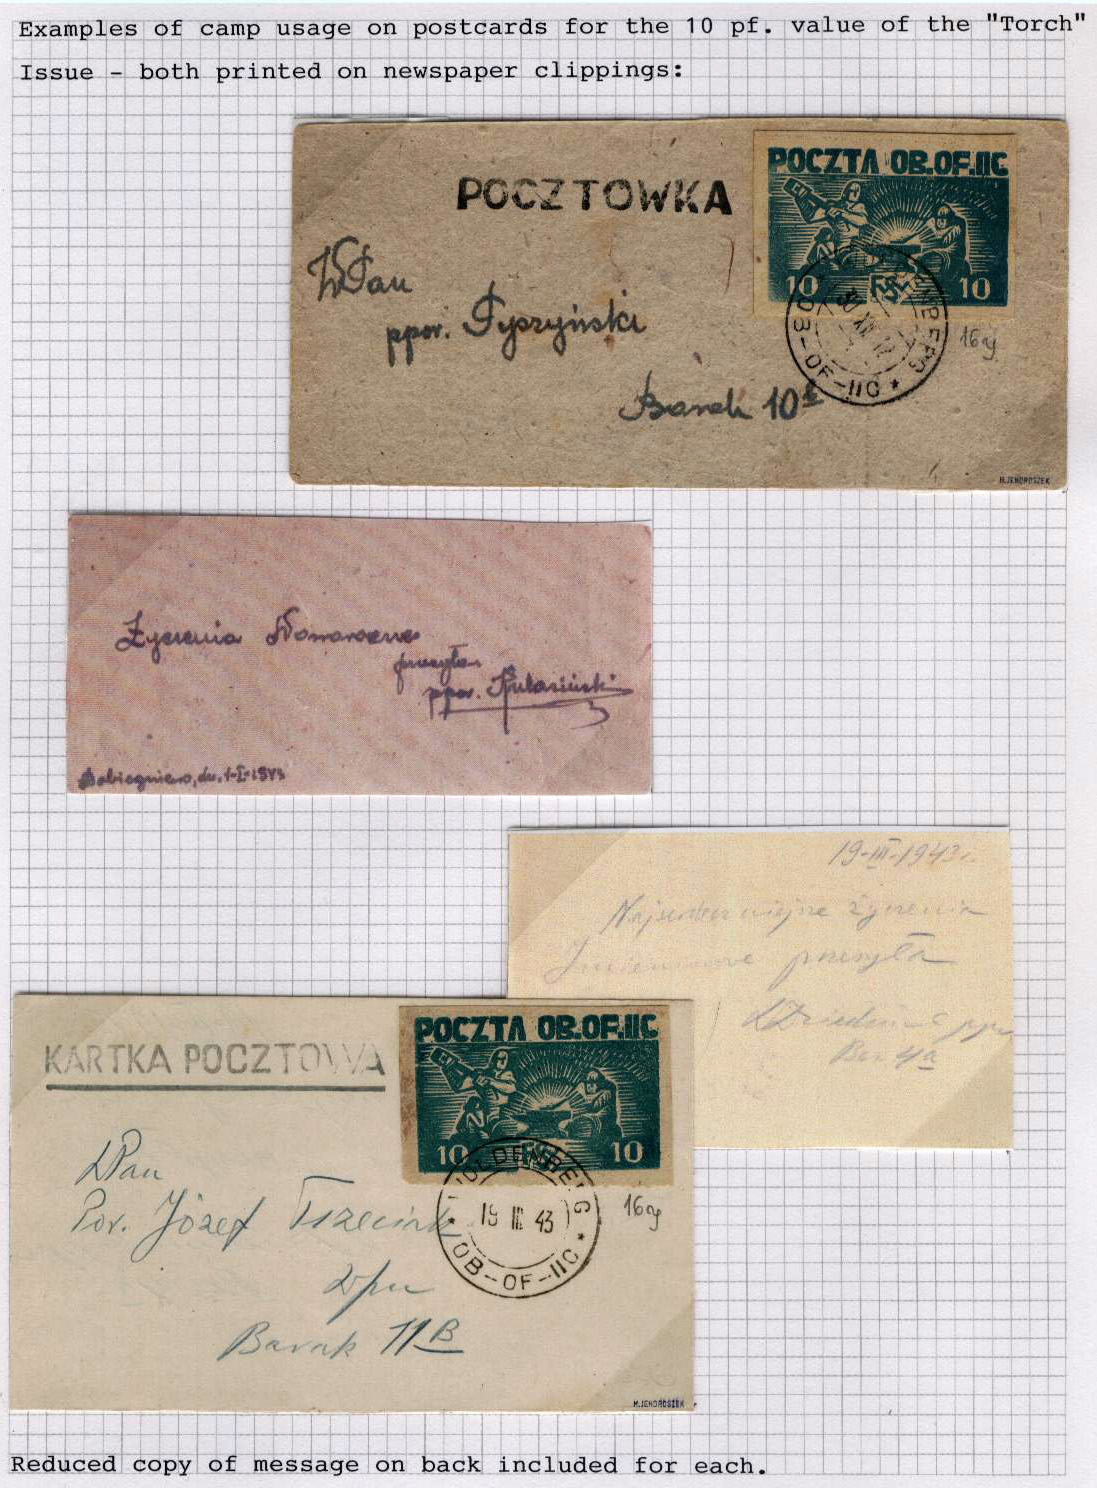 Examples of camp usage on postcards for the 10 pf. value of the "Torch"
Issue - both printed on newspaper clippings:
POCZTOWKA
POCZTA OB.OF.IIC
10 FSC 10
WPan
ppor. Tyszyński
Barak 10a
OB-OF-IIC *
16aj
M.JENDROSZEK
Życzenia Noworoczne
przesyła
ppor.
Dobiegniewo, dn. 1-I-1943
19-III-1943r.
Najserdeczniejsze życzenia
Imieninowe przesyła
Bar 4a
KARTKA POCZTOWA
POCZTA OB.OF.IIC
10 FSC 10
WPan
Por. Józef Trzeciak
WOLDENBERG
19 III 43
* OB-OF-IIC *
16aj
Barak 11B
M.JENDROSZEK
Reduced copy of message on back included for each.